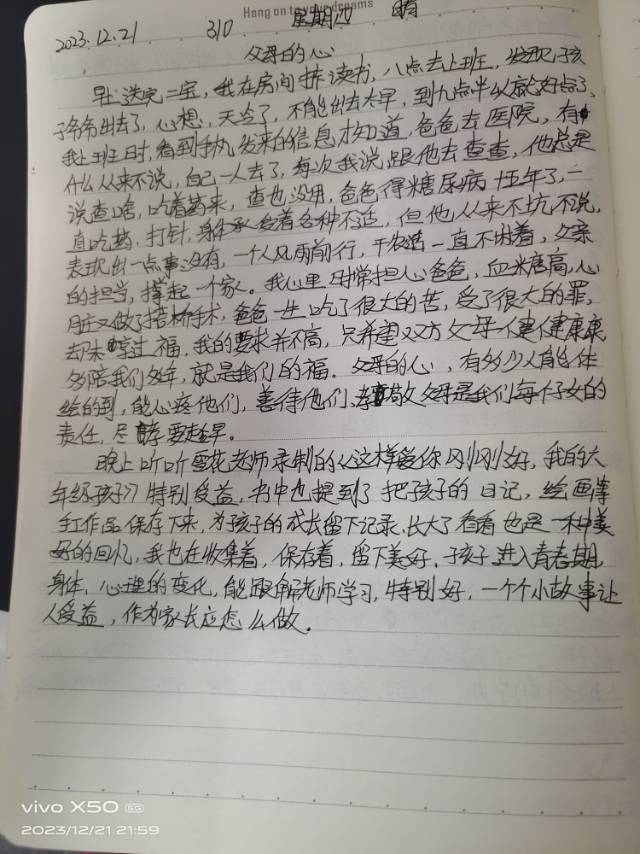 Hang on to your dreams
2023.12.21 310 星期四 晴
父母的心
早送完二宝,我在房间里读书,八点去上班,发现孩
子爷爷出去了,心想,天冷了,不能出去太早,到九点半以后好点了,
我上班时,看到手机发来的信息才知道,爸爸去医院,有
什么从来不说,自己一人去了,每次我说跟他去查查,他总是
说查啥,吃着药来,查也没用,爸爸得糖尿病十五年了,一
直吃药,打针,身体承受着各种不适,但他从来不坑,不说,
表现出一点事没有,一个人风雨前行,干农活一直不闲着,父亲
的担当,撑起一个家。我心里时常担心爸爸,血糖高,心
脏又做了搭桥手术,爸爸一生吃了很大的苦,受了很大的罪,
却未享过福,我的要求并不高,只希望双方父母一健健康康
多陪我们多年,就是我们的福。父母的心,有多少人能体
会的到,能心疼他们,善待他们,孝敬父母是我们每个子女的
责任,尽孝要趁早。
晚上听听雪花老师录制的《这样爱你刚刚好,我的六
年级孩子》特别受益,书中也提到了把孩子的日记,绘画等
手工作品保存下来,为孩子的成长留下记录,长大了看看也是一种美
好的回忆,我也在收集着,保存着,留下美好,孩子进入青春期,
身体,心理的变化,能跟解老师学习,特别好,一个个小故事让
人受益,作为家长应怎么做。
vivo X50 5G
2023/12/21 21:59